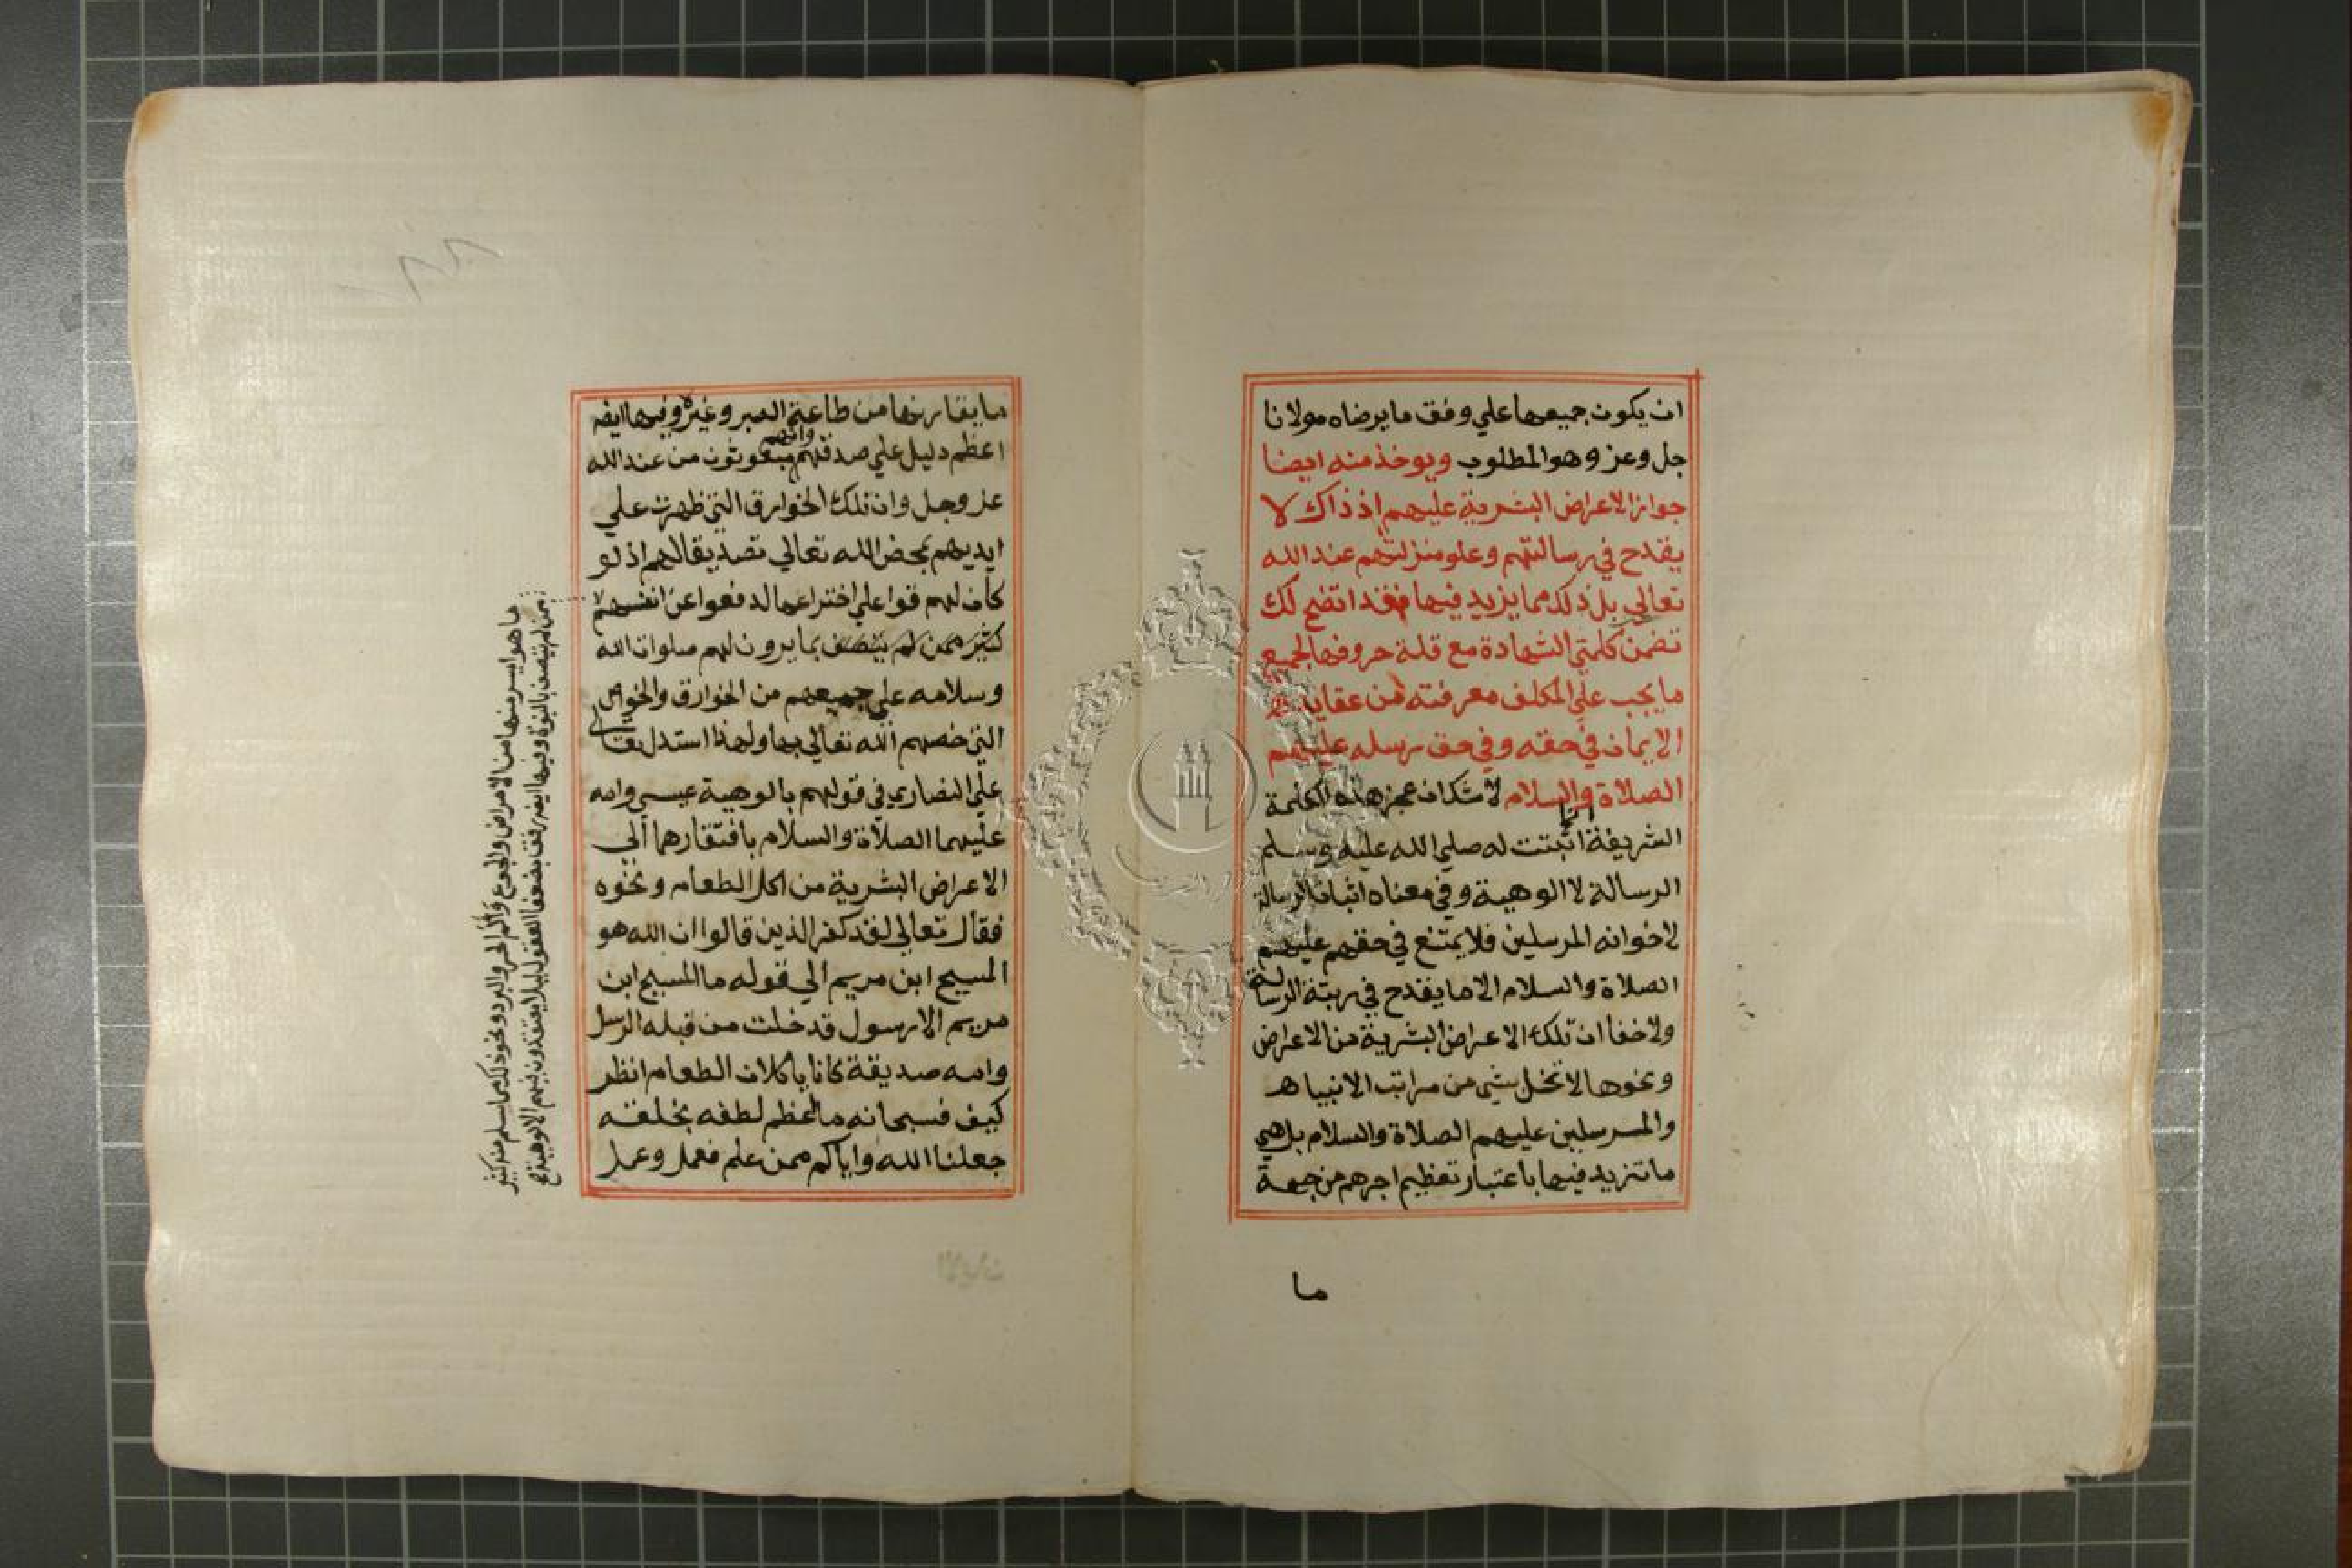 ان يكون جميعها علي وفق ما يرضاه مولانا
جل وعز وهو المطلوب ويوخذ منه ايضا
جواز الاعراض البشرية عليهم اذ ذاك لا
يقدح في رسالتهم وعلو منزلتهم عند الله
تعالي بل ذلك مما يزيد فيها فقد اتضح لك
تضمن كلمتي الشهادة مع قلة حروفها لجميع
ما يجب علي المكلف معرفته من عقايد
الايمان في حقه وفي حق رسله عليهم
الصلاة والسلام لا شك ان عجز هذه الكلمة
الشريفة انما اثبتت له صلي الله عليه وسلم
الرسالة لا الوهية وفي معناه اثبات الرسالة
لاخوانه المرسلين فلا يمتنع في حقهم عليهم
الصلاة والسلام الا ما يقدح في رتبة الرسالة
ولا خفا ان تلك الاعراض البشرية من الاعراض
ونحوها لا تخل بشي من مراتب الانبيا
والمرسلين عليهم الصلاة والسلام بل هي
ما تزيد فيها باعتبار تعظيم اجرهم من جهة
ما
ما يقارنها من طاعة الصبر وغيره وفيها ايضه
اعظم دليل علي صدقهم وانهم مبعوثون من عند الله
عز وجل وان تلك الخوارق التي ظهرت علي
ايديهم بمحض الله تعالي تصديقا لهم اذ لو
كان لهم قوا علي اختراعها لدفعوا عن انفسهم
كثير ممن لم يتصف بما يرون لهم صلوات الله
وسلامه علي جميعهم من الخوارق والخواص
التي خصهم الله تعالي بها ولهذا استدل تعالي
علي النصاري في قولهم بالوهية عيسي وامه
عليهما الصلاة والسلام بافتقارهما الي
الاعراض البشرية من اكل الطعام ونحوه
فقال تعالي لقد كفر الذين قالوا ان الله هو
المسيح ابن مريم الي قوله ما المسيح ابن
مريم الا رسول قد خلت من قبله الرسل
وامه صديقة كانا ياكلان الطعام انظر
كيف فسبحانه ما اعظم لطفه بخلقه
جعلنا الله واياكم ممن علم فعمل وعمل
ما هو ايسر منها من الامراض والجوع والم الحر والبرد ونحو ذلك مما سلم منه كثير
ممن لم يتصف بالنبوة وفيها ايضه رفق بضعفا العقول ليلا يعتقدون فيهم الالوهية